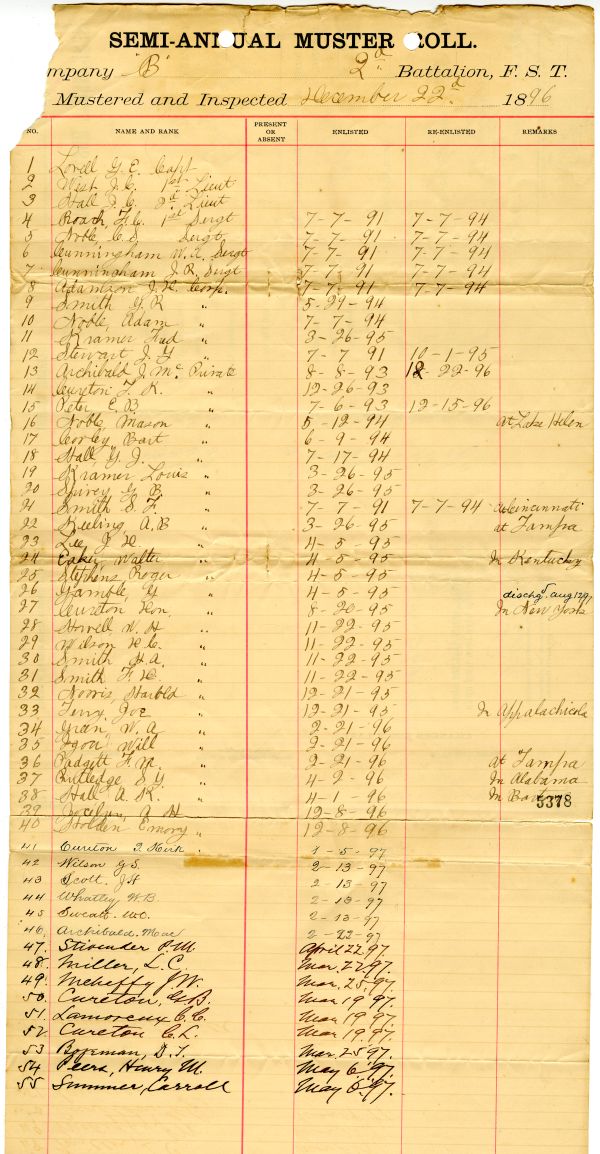 SEMI-ANNUAL MUSTER ROLL.
mpany "B" 2d Battalion, F. S. T.
Mustered and Inspected December 22d 1896
NO. NAME AND RANK PRESENT OR ABSENT ENLISTED RE-ENLISTED REMARKS
1 Lovell G. E. Capt
2 West J. C. 1st Lieut
3 Hall J. C. 2d Lieut
4 Roach, F. C. 1st Sergt 7-7-91 7-7-94
5 Noble, C. S. Sergt. 7-7-91 7-7-94
6 Cunningham W. A. Sergt 7-7-91 7-7-94
7 Cunningham J. R. Sergt 7-7-91 7-7-94
8 Adamson J. H. Corp. 7-7-91 7-7-94
9 Smith G. R " 5-29-94
10 Noble, Adam " 7-7-94
11 Kramer Fred " 3-26-95
12 Stewart J. G " 7-7-91 10-1-95
13 Archibald J. Mc Private 8-8-93 12-22-96
14 Cureton F. K. " 12-26-93
15 Peter E. B. " 7-6-93 12-15-96
16 Noble Mason " 5-12-94 at Lake Helen
17 Corley Bart " 6-9-94
18 Hall G. J. " 7-17-94
19 Kramer Louis " 3-26-95
20 Spivey G. B. " 3-26-95
21 Smith S. F. " 7-7-91 7-7-94 at Cincinnati
22 Keeling A. B " 3-26-95 at Tampa
23 Lee J H " 4-5-95
24 Eaker, Walter " 4-5-95 In Kentucky
25 Stephens Roger " 4-5-95
26 Gamble, G " 4-5-95 dischgd. aug 12 97
27 Cureton Hon. " 8-20-95 In New York
28 Howell W. H " 11-22-95
29 Wilson H. C. " 11-22-95
30 Smith H. A. " 11-22-95
31 Smith F. H. " 11-22-95
32 Norris Harbold " 12-21-95
33 Terry, Joe " 12-21-95 In Appalachicola
34 W. A " 2-21-96
35 Igou Will " 2-21-96
36 Padgett F. M. " 2-21-96 at Tampa
37 Rutledge S. G. " 4-2-96 In Alabama
38 Hall A. K. " 4-1-96 In
5378
39 A H " 12-8-96
40 Holden Emory " 12-8-96
41 Cureton T. Kirk " 1-5-97
42 Wilson G S. 2-13-97
43 Scott. J H 2-13-97
44 Whatley W. B. 2-13-97
45 Sweat. W. C. 2-13-97
46. Archibald. Mac 2-22-97
47. Stivender P. M. April 22 97.
48. Miller, L. C. Mar. 22 97.
49. Mehaffy J. W. Mar. 25 97.
50. Cureton, G. B. Mar 19 97.
51. Lamoreux C. C. Mar 19 97.
52 Cureton C. L. Mar 19. 97.
53 Bozeman, D. T. Mar. 25 97.
54 Peers, Henry M. May 6 97.
55 Summer, Carroll May 6 97.